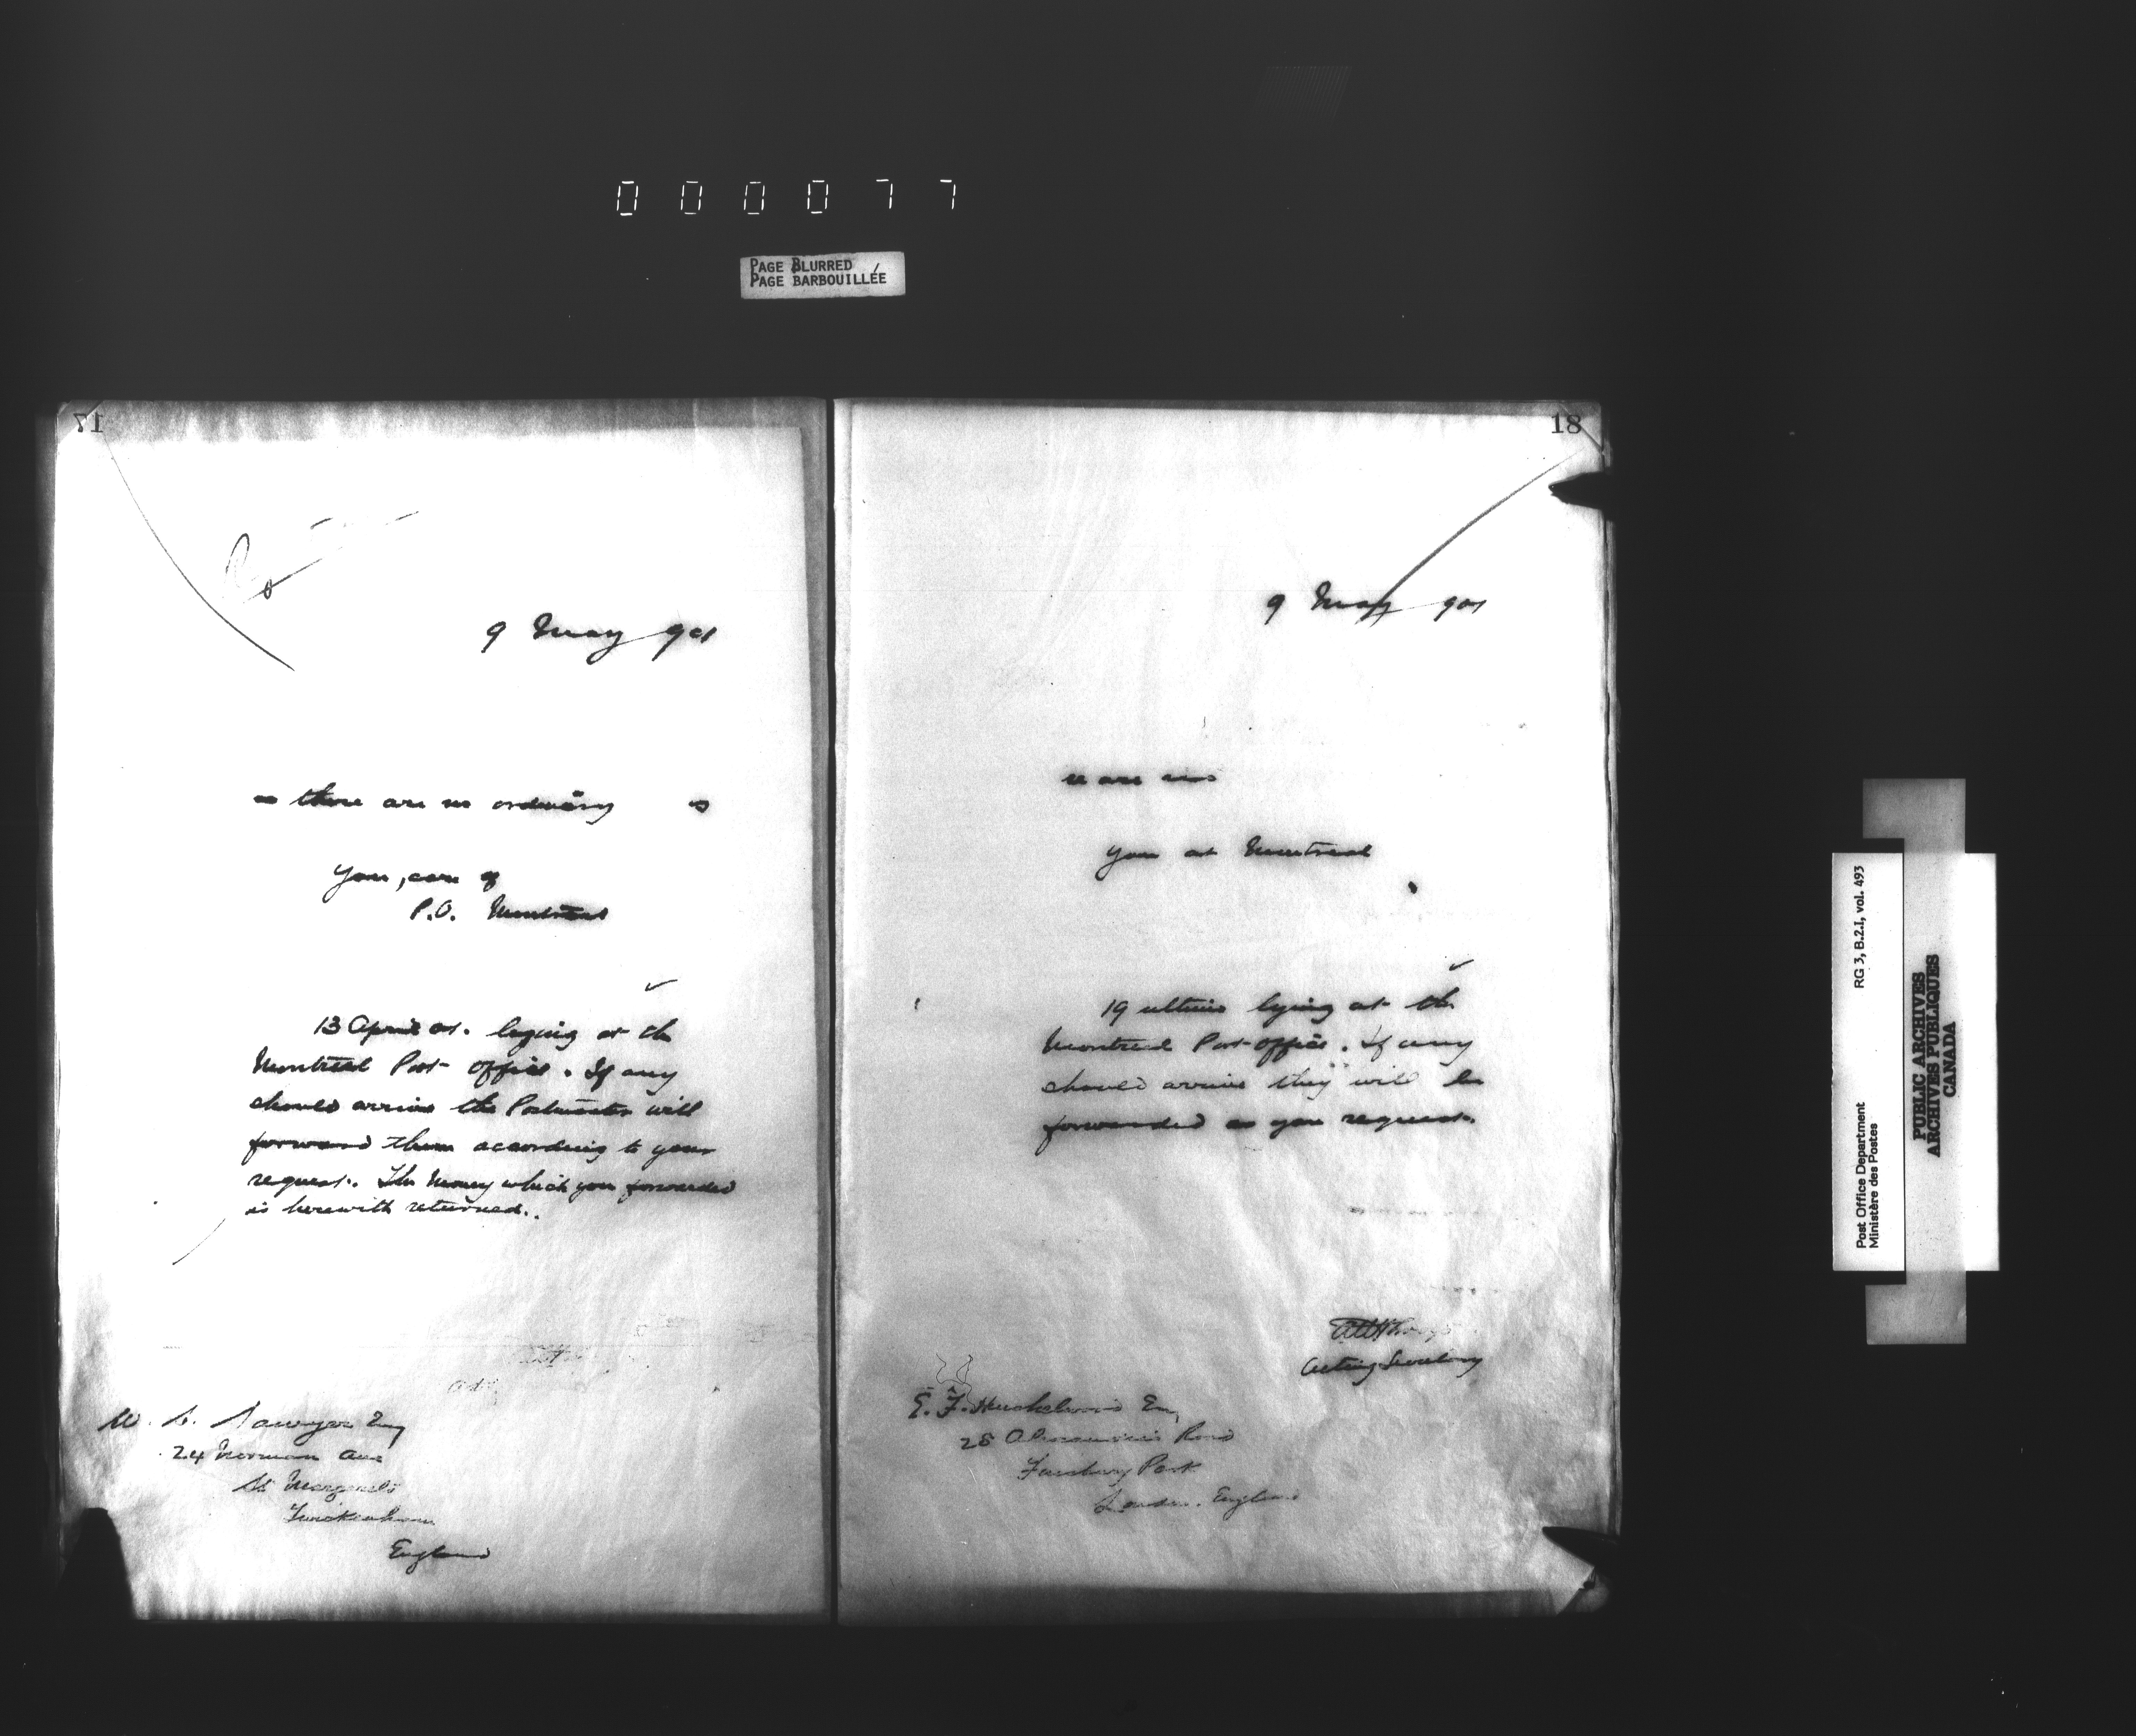 000077
PAGE BLURRED
PAGE BARBOUILLÉE
17
9 May 901
there are no ordinary
you, care of
P.O. Montreal
13 April 01. lying at the
Montreal Post office. If any
should arrive the Postmaster will
forward them according to your
request. The Money which you forwarded
is herewith returned.
Sawyer Esq
24 Norman Ave
St Margarets
Twickenham
England
18
9 May 901
are no
you at Montreal
19 ultimo lying at the
Montreal Post office. If any
should arrive they will be
forwarded as you request.
Acting Secretary
E. F. Esq
28 Road
Finsbury Park
London. England
Post Office Department
Ministère des Postes
RG 3, B.2.I, vol. 493
PUBLIC ARCHIVES
ARCHIVES PUBLIQUES
CANADA